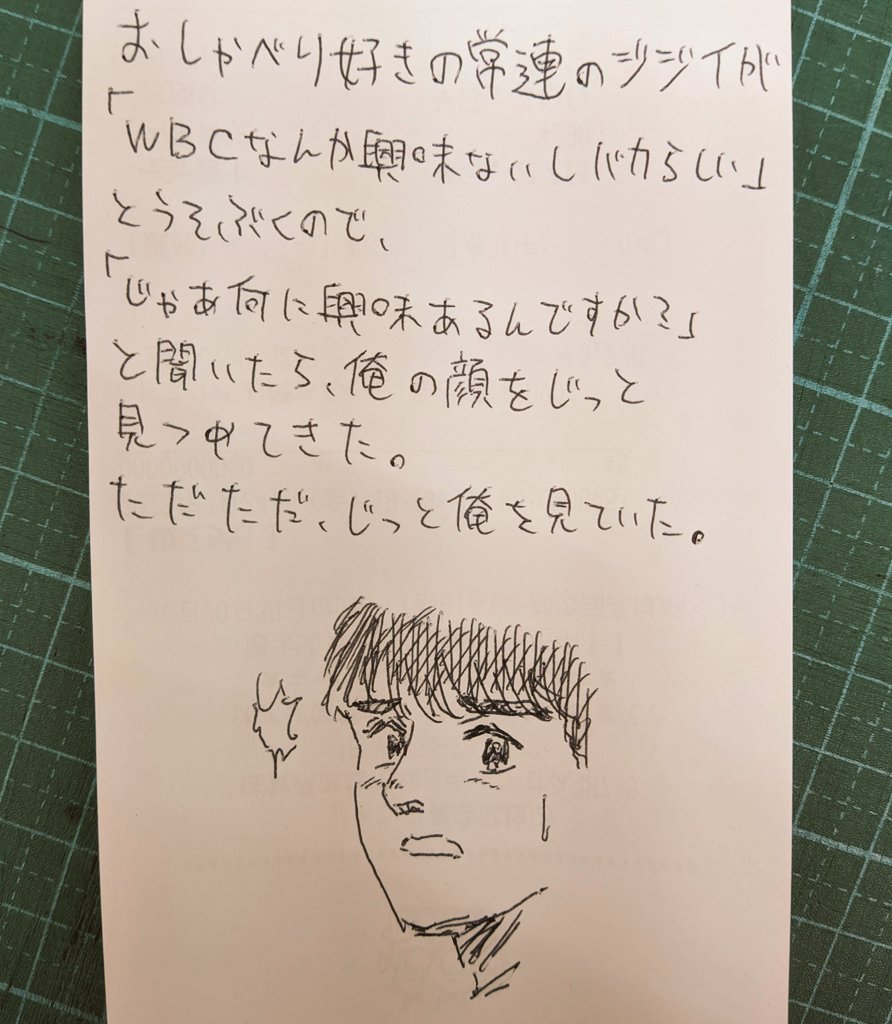 おしゃべり好きの常連のジジイが
「WBCなんか興味ないしバカらしい」
とうそぶくので、
「じゃあ何に興味あるんですか?」
と聞いたら、俺の顔をじっと
見つめてきた。
ただただ、じっと俺を見ていた。